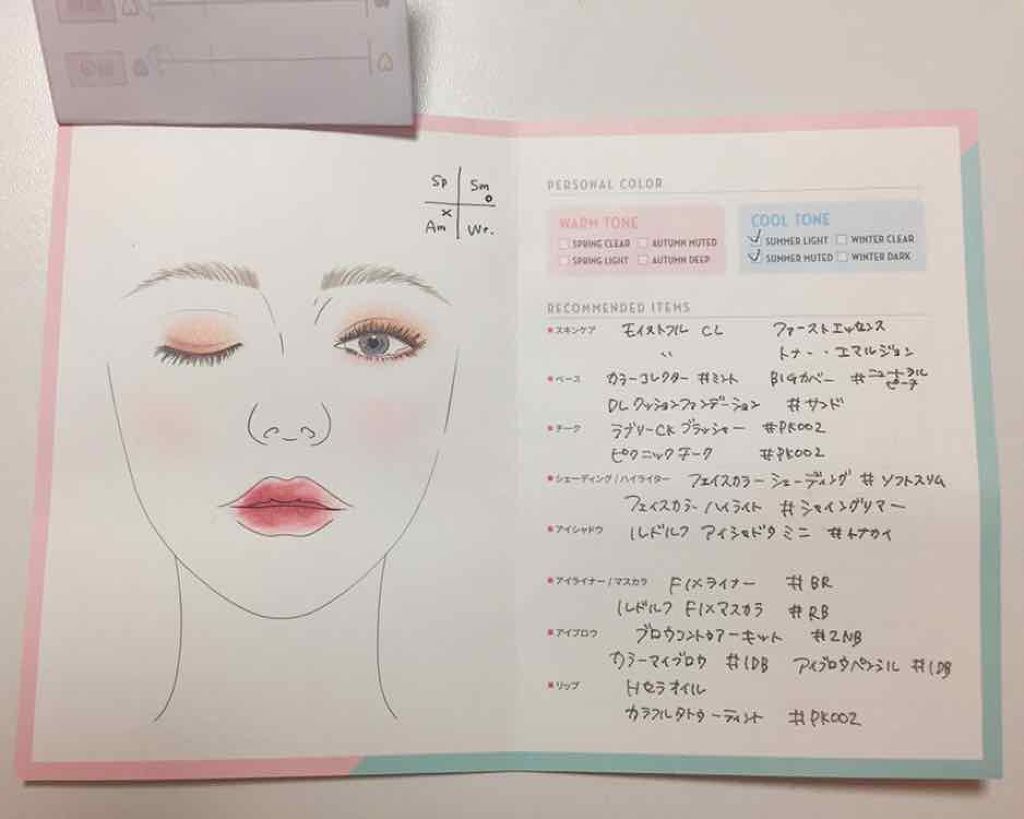 Sp Sm
Am Wi.
PERSONAL COLOR
WARM TONE
SPRING CLEAR AUTUMN MUTED
SPRING LIGHT AUTUMN DEEP
COOL TONE
SUMMER LIGHT WINTER CLEAR
SUMMER MUTED WINTER DARK
RECOMMENDED ITEMS
スキンケア モイストフル CL ファーストエッセンス
〃 トナー・エマルジョン
ベース カラーコレクター #ミント BIGカバー #ニュートラルピーチ
DLクッションファンデーション #サンド
チーク ラブリーCKブラッシャー #PK002
ピクニックチーク #PK002
シェーディング/ハイライター フェイスカラー シェーディング #ソフトスリム
フェイスカラー ハイライト #シャイングリマー
アイシャドウ ルドルフ アイシャドウ ミニ #トナカイ
アイライナー/マスカラ FIXライナー #BR
ルドルフ FIXマスカラ #RB
アイブロウ ブロウコントゥアーキット #2NB
カラーマイブロウ #1DB アイブロウペンシル #1DB
リップ Hセラオイル
カラフルタトゥーティント #PK002